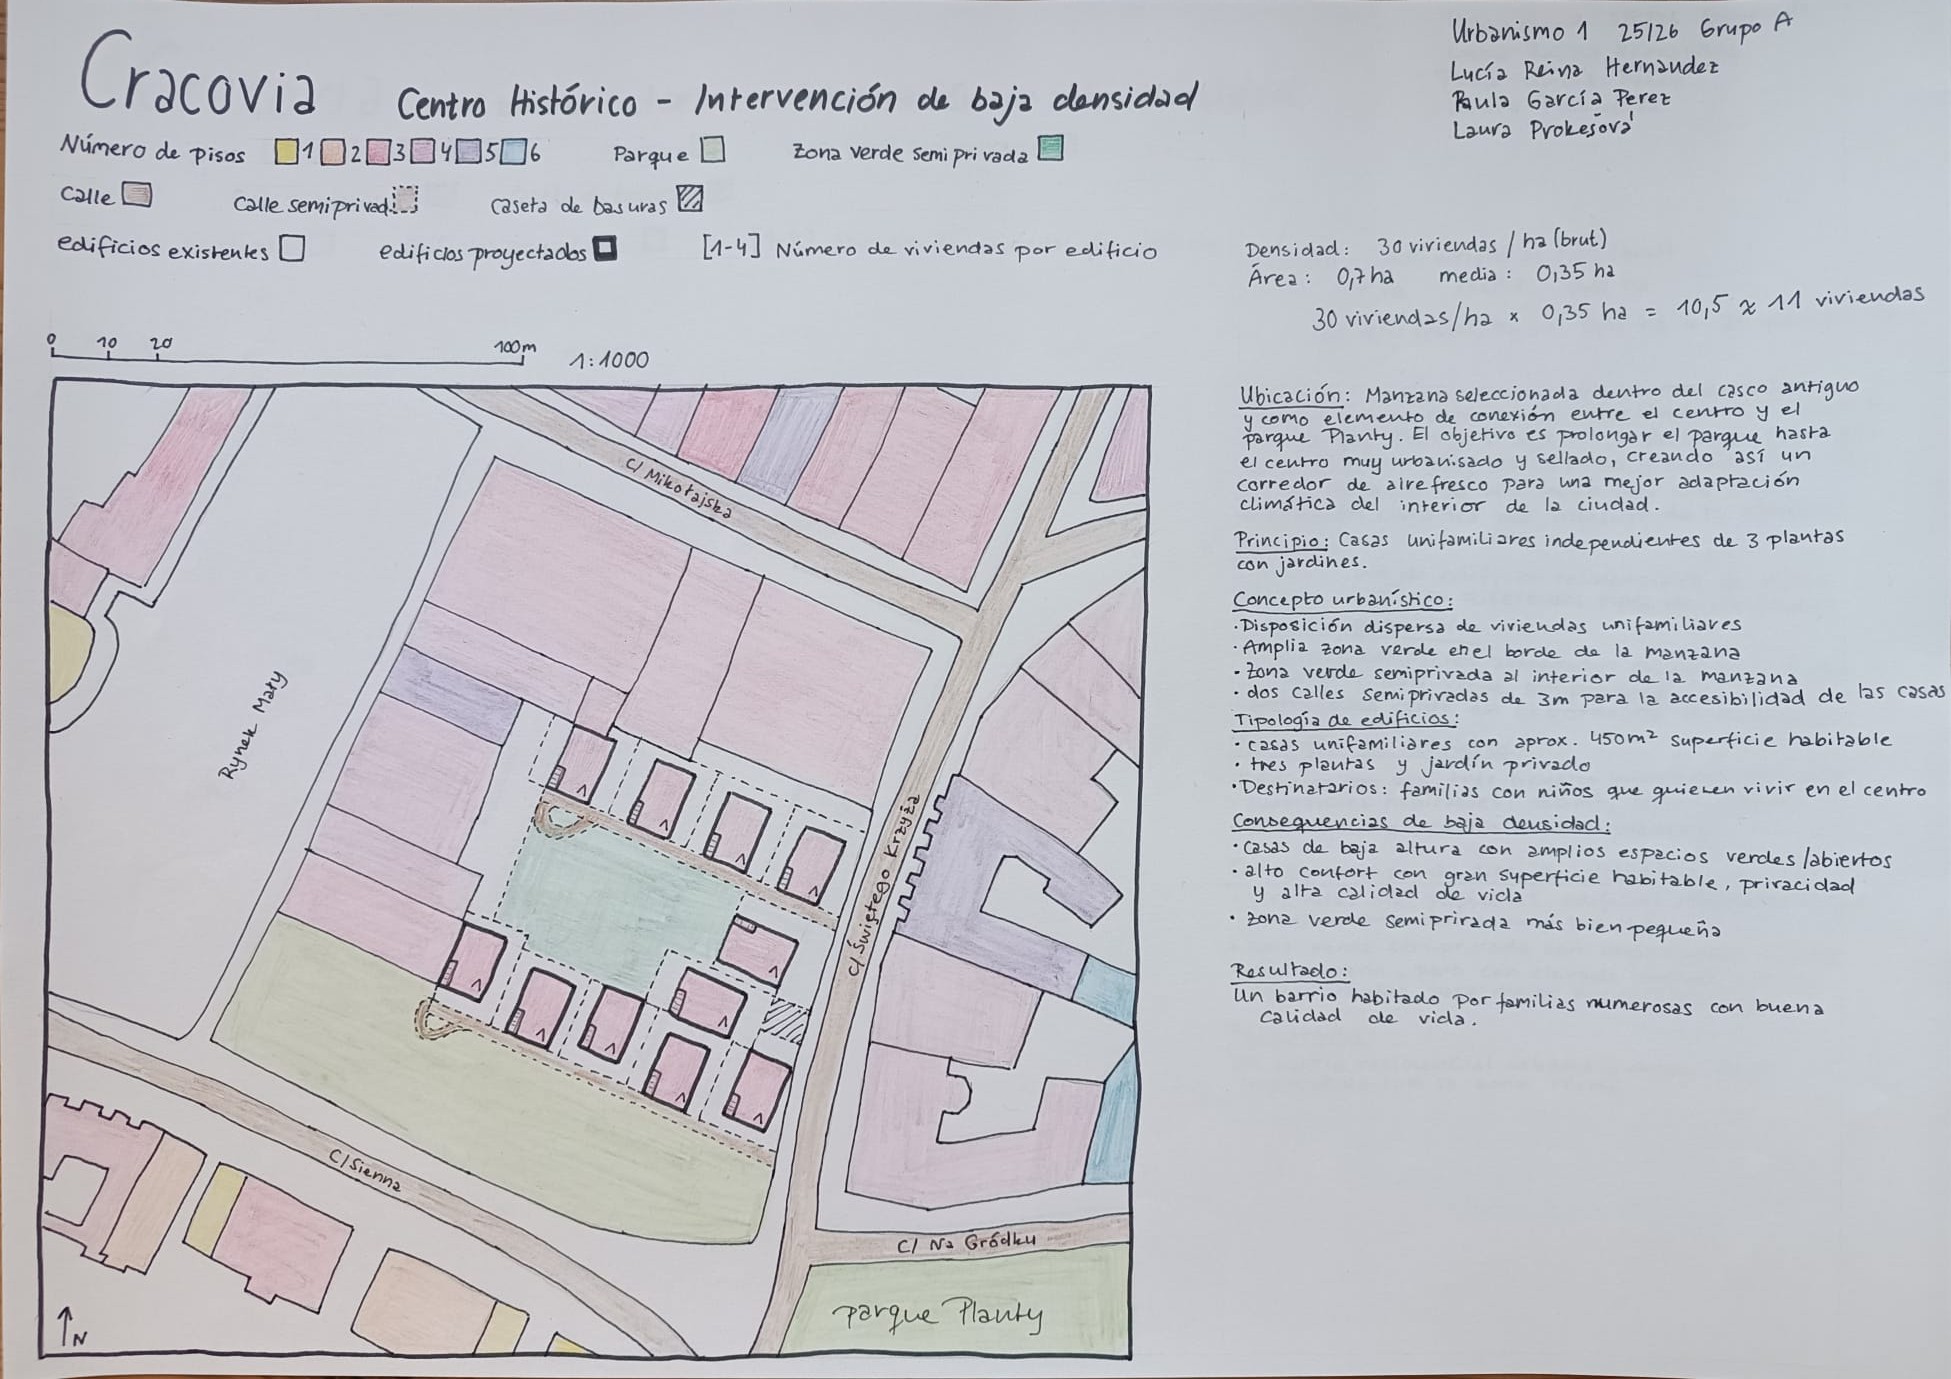 Cracovia
Centro Histórico - Intervención de baja densidad
Urbanismo 1 25/26 Grupo A
Lucía Reina Hernandez
Paula García Perez
Laura Prokešová
Número de pisos 1 2 3 4 5 6 Parque Zona verde semiprivada
Calle Calle semiprivad. caseta de basuras
edificios existentes edificios proyectados [1-4] Número de viviendas por edificio
Densidad: 30 viviendas / ha (brut)
Área: 0,7 ha media: 0,35 ha
30 viviendas/ha × 0,35 ha = 10,5 ≈ 11 viviendas
0 10 20 100m 1:1000
Ubicación: Manzana seleccionada dentro del casco antiguo
y como elemento de conexión entre el centro y el
parque Planty. El objetivo es prolongar el parque hasta
el centro muy urbanisado y sellado, creando así un
corredor de aire fresco para una mejor adaptación
climática del interior de la ciudad.
Principio: Casas unifamiliares independientes de 3 plantas
con jardines.
Concepto urbanístico:
· Disposición dispersa de viviendas unifamiliares
· Amplia zona verde en el borde de la manzana
· Zona verde semiprivada al interior de la manzana
· dos calles semiprivadas de 3m para la accesibilidad de las casas
Tipología de edificios:
· casas unifamiliares con aprox. 450m² superficie habitable
· tres plantas y jardín privado
· Destinatarios: familias con niños que quieren vivir en el centro
Consequencias de baja densidad:
· casas de baja altura con amplios espacios verdes/abiertos
· alto confort con gran superficie habitable, privacidad
y alta calidad de vida
· zona verde semiprivada más bien pequeña
Resultado:
Un barrio habitado por familias numerosas con buena
calidad de vida.
C/ Mikołajska
Rynek Mały
C/ Świętego Krzyża
C/ Sienna
C/ Na Gródku
parque Planty
N